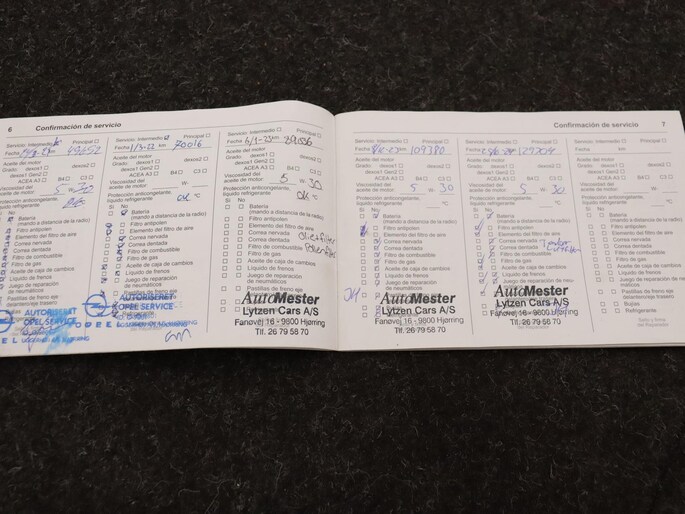 6 Confirmación de servicio
Servicio: Intermedio Principal
Fecha km
Aceite del motor
Grado: dexos1 dexos2
dexos1 Gen2
ACEA A3 B4 C3
Viscosidad del
aceite de motor: 5 W
Protección anticongelante,
líquido refrigerante °C
Sí No
AUTORISERET
OPEL SERVICE
OPEL
Servicio: Intermedio Principal
Fecha 1/3-22 km 70016
Aceite del motor
Grado: dexos1 dexos2
dexos1 Gen2
ACEA A3 B4 C3
Viscosidad del
aceite de motor: 5 W 30
Protección anticongelante,
líquido refrigerante ok °C
Sí No
Batería
(mando a distancia de la radio)
Filtro antipolen
Elemento del filtro de aire
Correa nervada
Correa dentada
Filtro de combustible
Filtro de gas
Aceite de caja de cambios
Líquido de frenos
Juego de reparación
de neumáticos
Pastillas de freno eje
(delantero/eje trasero)
AUTORISERET
OPEL SERVICE
Servicio: Intermedio Principal
Fecha 6/1-23 km
Aceite del motor
Grado: dexos1 dexos2
dexos1 Gen2
ACEA A3 B4 C3
Viscosidad del
aceite de motor: 5 W 30
Protección anticongelante,
líquido refrigerante ok °C
Sí No
Batería
(mando a distancia de la radio)
Filtro antipolen
Elemento del filtro de aire
Correa nervada
Correa dentada
Filtro de combustible
Filtro de gas
Aceite de caja de cambios
Líquido de frenos
Juego de reparación
de neumáticos
Pastillas de freno eje
AutoMester
Lytzen Cars A/S
Fanøvej 16 - 9800 Hjørring
Tlf. 26 79 58 70
Confirmación de servicio 7
Servicio: Intermedio Principal
Fecha km 109380
Aceite del motor
Grado: dexos1 dexos2
dexos1 Gen2
ACEA A3 B4 C3
Viscosidad del
aceite de motor: 5 W 30
Protección anticongelante,
líquido refrigerante °C
Sí No
Batería
(mando a distancia de la radio)
Filtro antipolen
Elemento del filtro de aire
Correa nervada
Correa dentada
Filtro de combustible
Filtro de gas
Aceite de caja de cambios
Líquido de frenos
Juego de reparación
de neumáticos
AutoMester
Lytzen Cars A/S
Fanøvej 16 - 9800 Hjørring
Tlf. 26 79 58 70
Servicio: Intermedio Principal
Fecha km
Aceite del motor
Grado: dexos1 dexos2
dexos1 Gen2
ACEA A3 B4 C3
Viscosidad del
aceite de motor: 5 W 30
Protección anticongelante,
líquido refrigerante °C
Sí No
Batería
(mando a distancia de la radio)
Filtro antipolen
Elemento del filtro de aire
Correa nervada
Correa dentada
Filtro de combustible
Filtro de gas
Aceite de caja de cambios
Líquido de frenos
Juego de reparación
de neumáticos
AutoMester
Lytzen Cars A/S
Fanøvej 16 - 9800 Hjørring
Tlf. 26 79 58 70
Servicio: Intermedio Principal
Fecha km
Aceite del motor
Grado: dexos1 dexos2
dexos1 Gen2
ACEA A3 B4 C3
Viscosidad del
aceite de motor: W
Protección anticongelante,
líquido refrigerante °C
Sí No
Batería
(mando a distancia de la radio)
Filtro antipolen
Elemento del filtro de aire
Correa nervada
Correa dentada
Filtro de combustible
Filtro de gas
Aceite de caja de cambios
Líquido de frenos
Juego de reparación
de neumáticos
Pastillas de freno eje
(delantero/eje trasero)
Refrigerante
Sello y firma
del Reparador